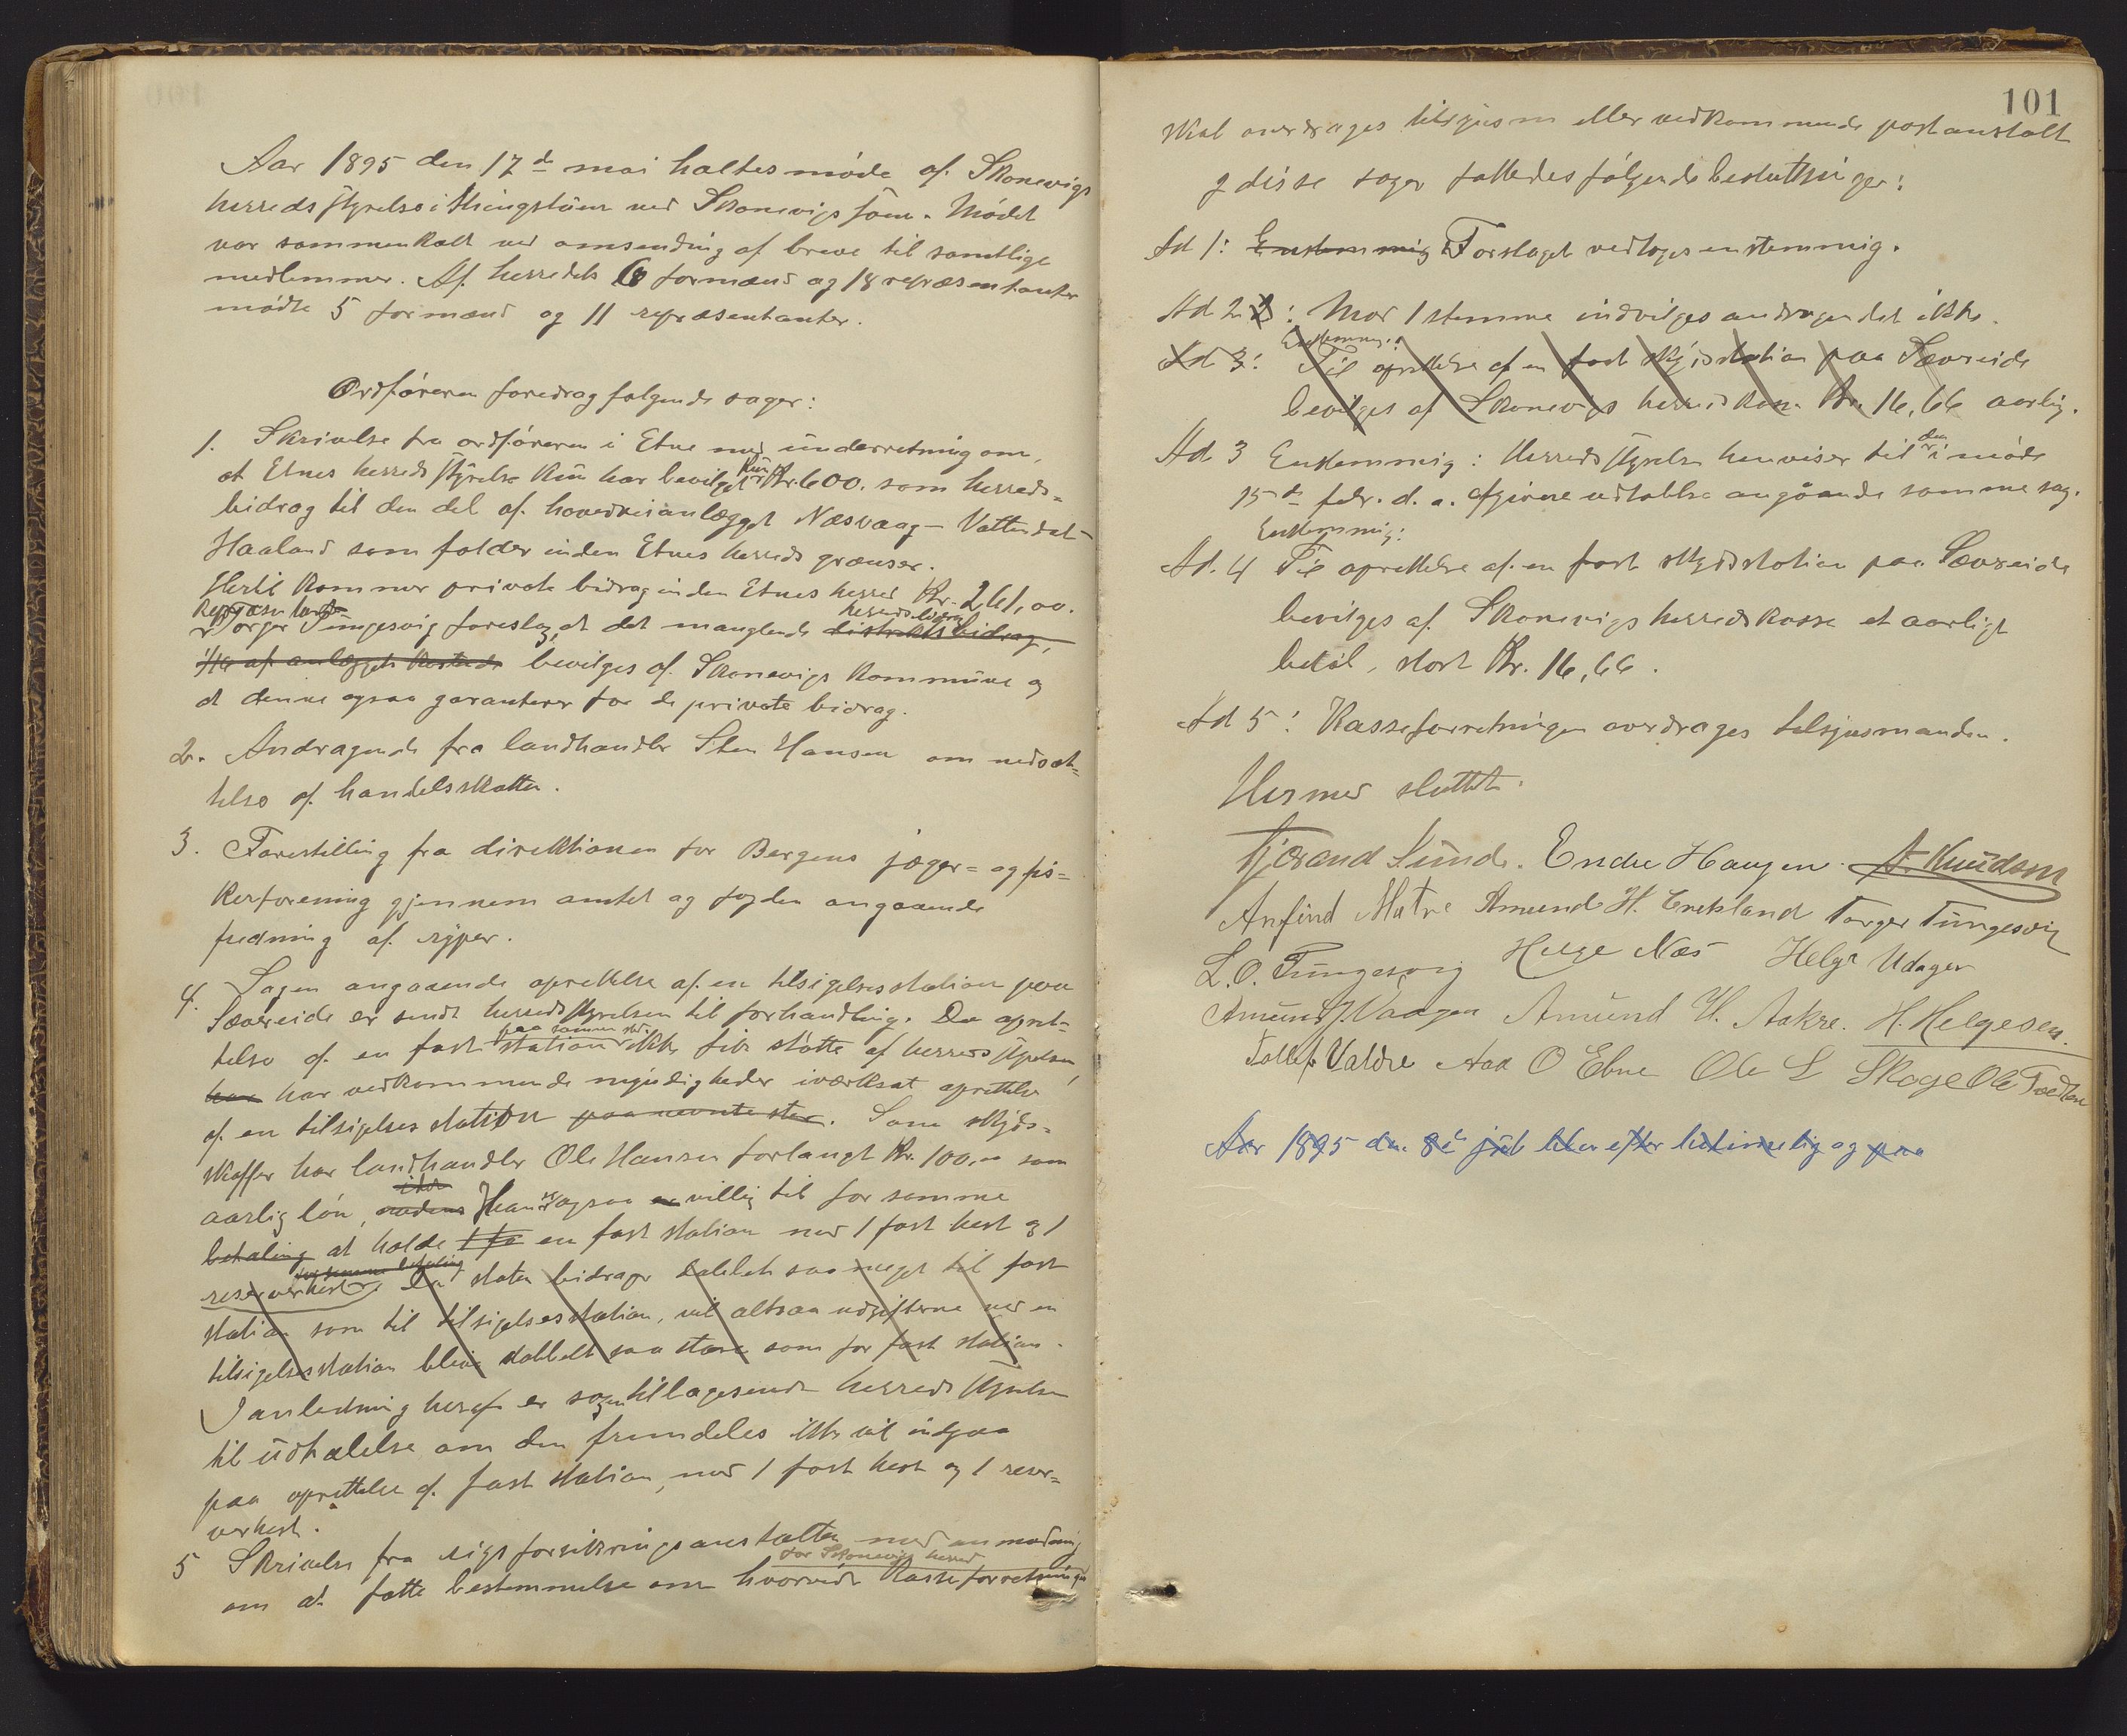 Aar 1895 den 17de mai holtes møde af Skonevigs
herredsstyrelse i thingstuen ved Skonevigs søen. Mødet
var sammenkalt ved omsending af breve til samtlige
medlemmer. Af herredets 6 formænd og 18 repræsentanter
mødte 5 formænd og 11 repræsentanter.
Ordføreren foredrag følgende sager:
1. Skrivelse fra ordføreren i Etne med underretning om,
at Etnes herredsstyrelse kun har bevilget kun Kr. 600. som herreds=
bidrag til den del af hovedveianlægget Næsvaag - Vattedal -
Haaland som falder inden Etnes herreds grænser.
Hertil kommer private bidrag inden Etnes herred Kr. 261,00.
Repræsentant herredsbidrag
Torger Tungesvig foreslog, at det manglende distriktsbidrag,
1/10 af anlæggets kostende bevilges af Skonevigs kommune og
at denne ogsaa garanterer for de private bidrag.
2. Andragende fra landhandler Sten Hansen om nedsæt=
telse af handelsskatten.
3. Forestilling fra direktionen for Bergens jæger= og fis=
kerforening gjennem amtet og fogden angaaende
fredning af ryper.
4. Sagen angaaende oprettelse af en tilsigelsesstation paa
Sævereide er sendt herredsstyrelsen til forhandling. Da opret=
paa samme sted
telse af en fast station ikke fik støtte af herredsstyrelsen,
har har vedkommende myndigheder iværksat oprettelse
af en tilsigelsesstation paa nevnte sted. Som skyds=
skaffer har landhandler Ole Hansen forlangt Kr. 100,00 som
aarlig løn, Han er ogsaa er villig til for samme
betaling at holde en fast station med 1 fast hest og 1
for samme betaling
reserverhest. Da staten bidrager dobbelt saa meget til fast
station som til tilsigelsesstation, vil altsaa udgifterne ved en
tilsigelsesstation blive dobbelt saa store som for fast station.
I anledning heraf er sagen tilbagesendt herredsstyrelsen
til udtalelse om den fremdeles ikke vil indgaa
paa oprettelse af fast station, med 1 fast hest og 1 reser=
verhest.
5 Skrivelse fra rigsforsikringsanstalten med anmodning
for Skonevigs herred
om at fatte bestemmelse om hvorvidt kasseforretningen
101
skal overdrages tilsynsm eller vedkommende postanstalt
I disse sager fattedes følgende beslutninger:
Ad 1: Enstemmig Forslaget vedtoges enstemmig.
Ad 2: Mod 1 stemme indvilges andragendet ikke.
Enstemmig:
Ad 3: Til oprettelse af en fast skydsstation paa Sævereide
bevilges af Skonevigs herredskasse Kr. 16,66 aarlig.
Ad 3 Enstemmig: Herredsstyrelsen henviser til den i møde
15de febr. d. a. afgivne udtalelse angåaende samme sag.
Enstemmig:
Ad. 4 Til oprettelse af en fast skydsstation paa Sævereide
bevilges af Skonevigs herredskasse et aarligt
beløb, stort Kr. 16,66.
Ad 5: Kasseforretningen overdrages tilsynsmanden.
Hermed sluttet.
Tjerand Sunde. Endre Haugen. A. Knudsen
Anfind Matre Amund H. Enetsland Torger Tungesvig
L. O. Tungesvig Helge Næs Helge Udager
Amund J. Vaagen Amund H. Aakre. H. Helgesen.
Tollef Valdre Aad O Ebne Ole L Skoge Ole Tædten
Aar 1895 den 8de juli blev efter betimelig og paa